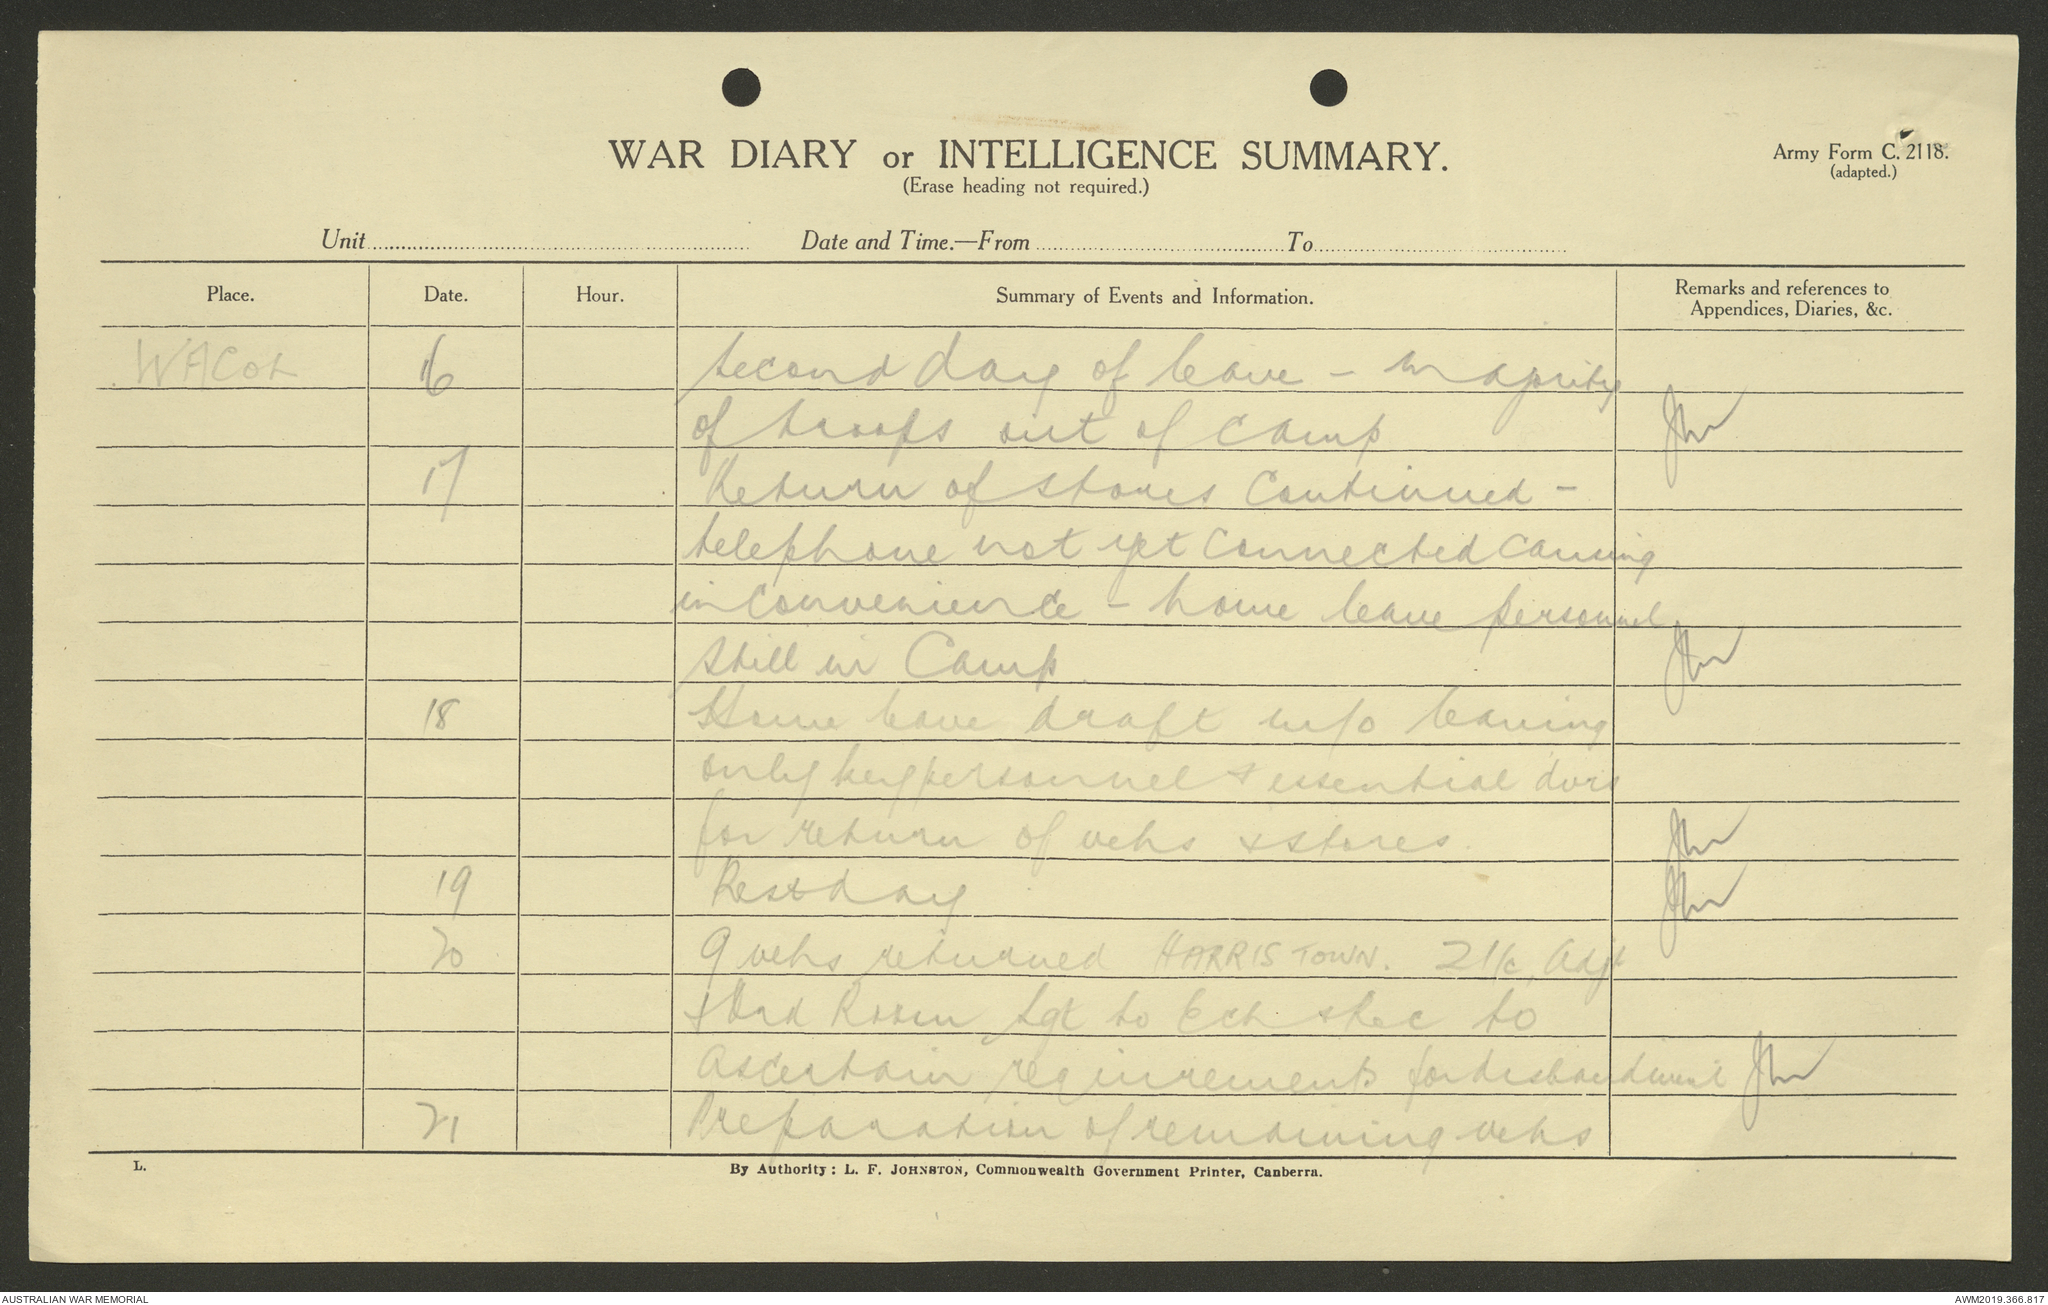 WAR DIARY or INTELLIGENCE SUMMARY.
Army Form C. 2118.
(adapted.)
(Erase heading not required.)
Unit Date and Time.—From To
Place. Date. Hour. Summary of Events and Information. Remarks and references to
Appendices, Diaries, &c.
WACOL 16 Second day of leave - majority
of troops out of camp
17 Return of stores continued -
telephone not yet connected causing
inconvenience - home leave personnel
still in Camp.
18 Home leave draft m/o leaving
only key personnel & essential dvrs
for return of vehs & stores.
19 Rest day
20 9 vehs returned HARRISTOWN. 2I/c, Adjt
& Ord Room Sgt to Ech & Rec to
ascertain requirements for disbandment
21 Preparation of remaining vehs
L. By Authority: L. F. JOHNSTON, Commonwealth Government Printer, Canberra.
AUSTRALIAN WAR MEMORIAL AWM2019.366.817